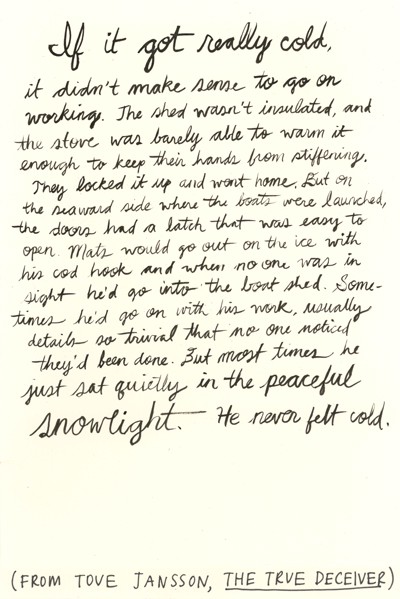 If it got really cold,
it didn't make sense to go on
working. The shed wasn't insulated, and
the stove was barely able to warm it
enough to keep their hands from stiffening.
They locked it up and went home. But on
the seaward side where the boats were launched,
the doors had a latch that was easy to
open. Mats would go out on the ice with
his cod hook and when no one was in
sight he'd go into the boat shed. Some-
times he'd go on with his work, usually
details so trivial that no one noticed
they'd been done. But most times he
just sat quietly in the peaceful
snowlight. He never felt cold.
(FROM TOVE JANSSON, THE TRUE DECEIVER)